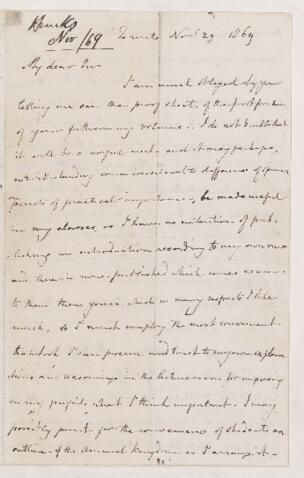 Hincks
Nov /69
Toronto Nov. 29 1869
My dear Sir
I am much obliged by your
letting me see the proof sheets of the first portion
of your forthcoming volume. I do not doubt that
it will be a useful work and it may perhaps,
notwithstanding some considerable difference of opinion
points of practical importance, be made useful
in my classes, as I have no intention of pub-
lishing an introduction according to my own views
and there is none published which comes nearer
to them than yours which in many respects I like
much, so I must employ the most convenient
textbook I can procure and trust to my own explana
tions and reasonings in the lecture room for impressing
on my pupils what I think important. I may
possibly print for the convenience of students an
outline of the Animal Kingdom as I arrange it